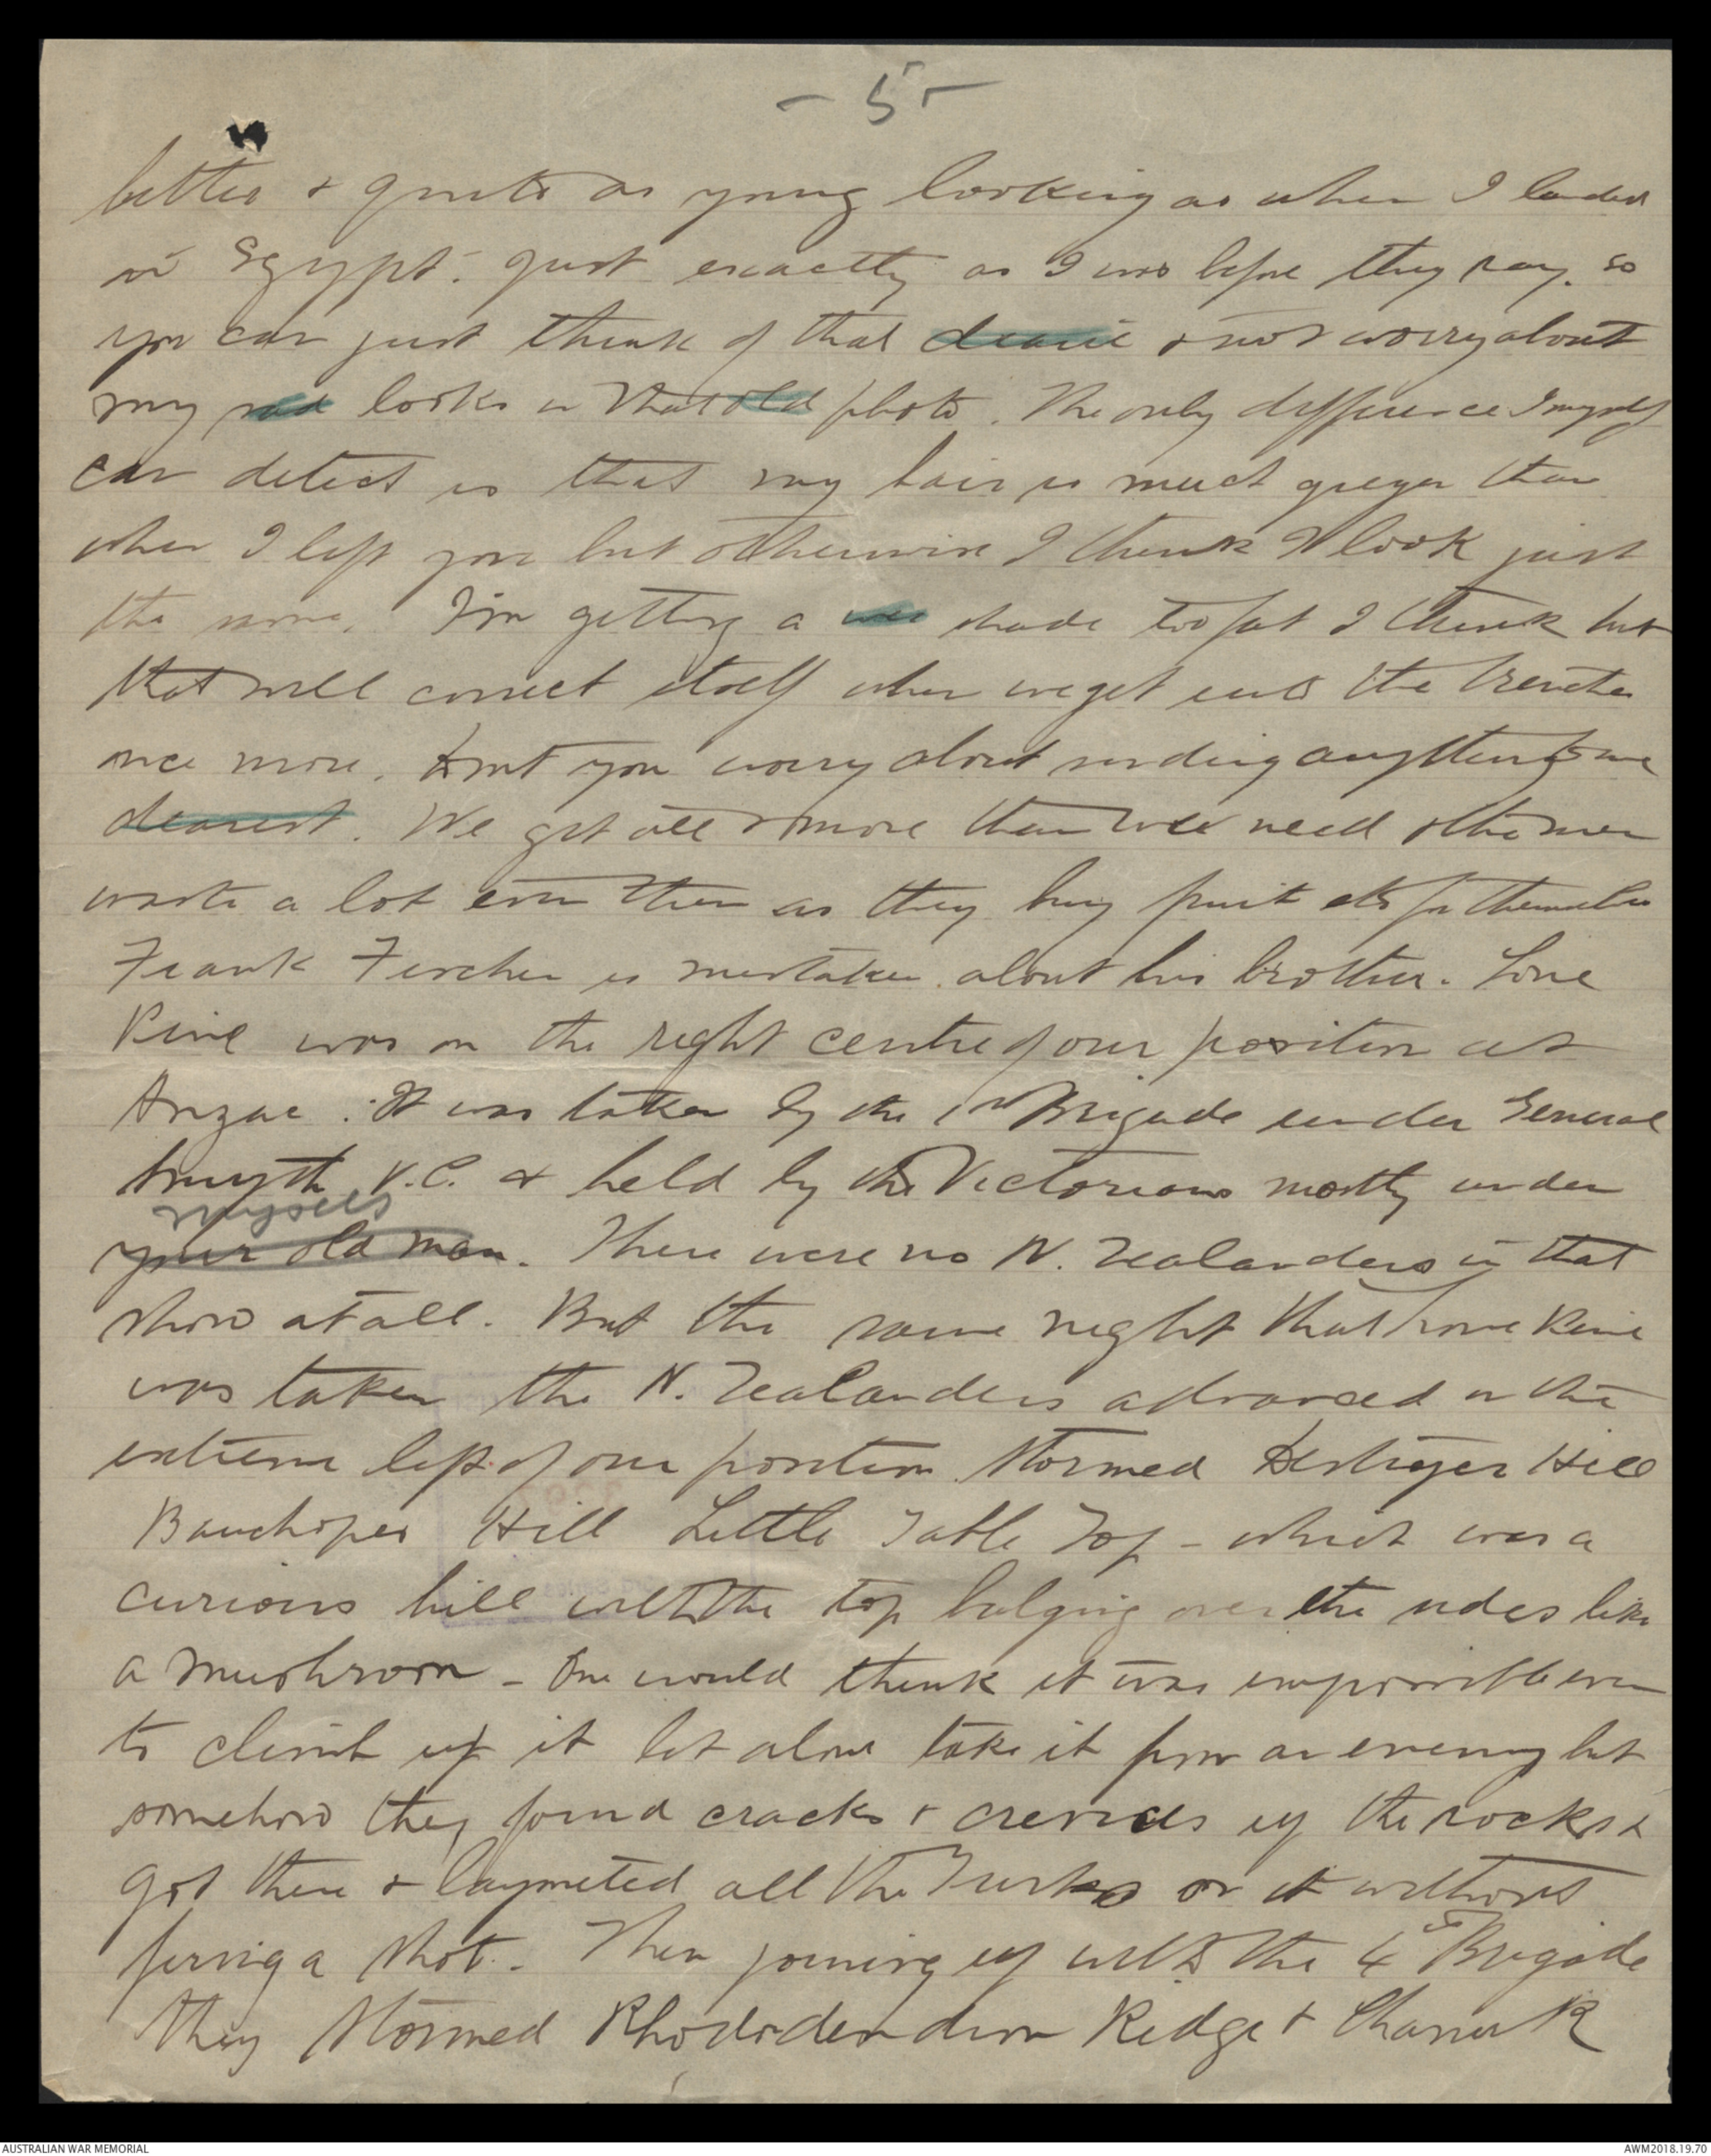 - 5 -
better & quite as young looking as when I landed
in Egypt. Just exactly as I was before they say. so
you can just think of that dearie & not worry about
my sad looks in that old photo. The only difference I myself
can detect is that my hair is much greyer than
when I left you but otherwise I think I look just
the same. I'm getting a wee shade too fat I think but
that will correct itself when we get into the trenches
once more. Dont you worry about sending anything to me
dearest. We get all & more than we need & the men
waste a lot even then as they buy fruit etc for themselves
Frank is mistaken about his brother. Lone
Pine was on the right centre of our position at
Anzac. It was taken by the 1st Brigade under General
Smyth V.C. & held by the Victorians mostly under
myself
your old man. There were no N. Zealanders in that
show at all. But the same night that Lone Pine
was taken the N. Zealanders advanced on the
extreme left of our position stormed Destroyer Hill
Bauchopes Hill Little Table Top - which was a
curious hill with the top bulging over the sides like
a mushroom - One would think it was impossible even
to climb up it let alone take it from an enemy but
somehow they found cracks & crevices up the rocks &
got there & bayoneted all the Turks on it without
firing a shot. Then joining up with the 4th Brigade
they stormed Rhododendron Ridge & Chanuk
AUSTRALIAN WAR MEMORIAL
AWM2018.19.70